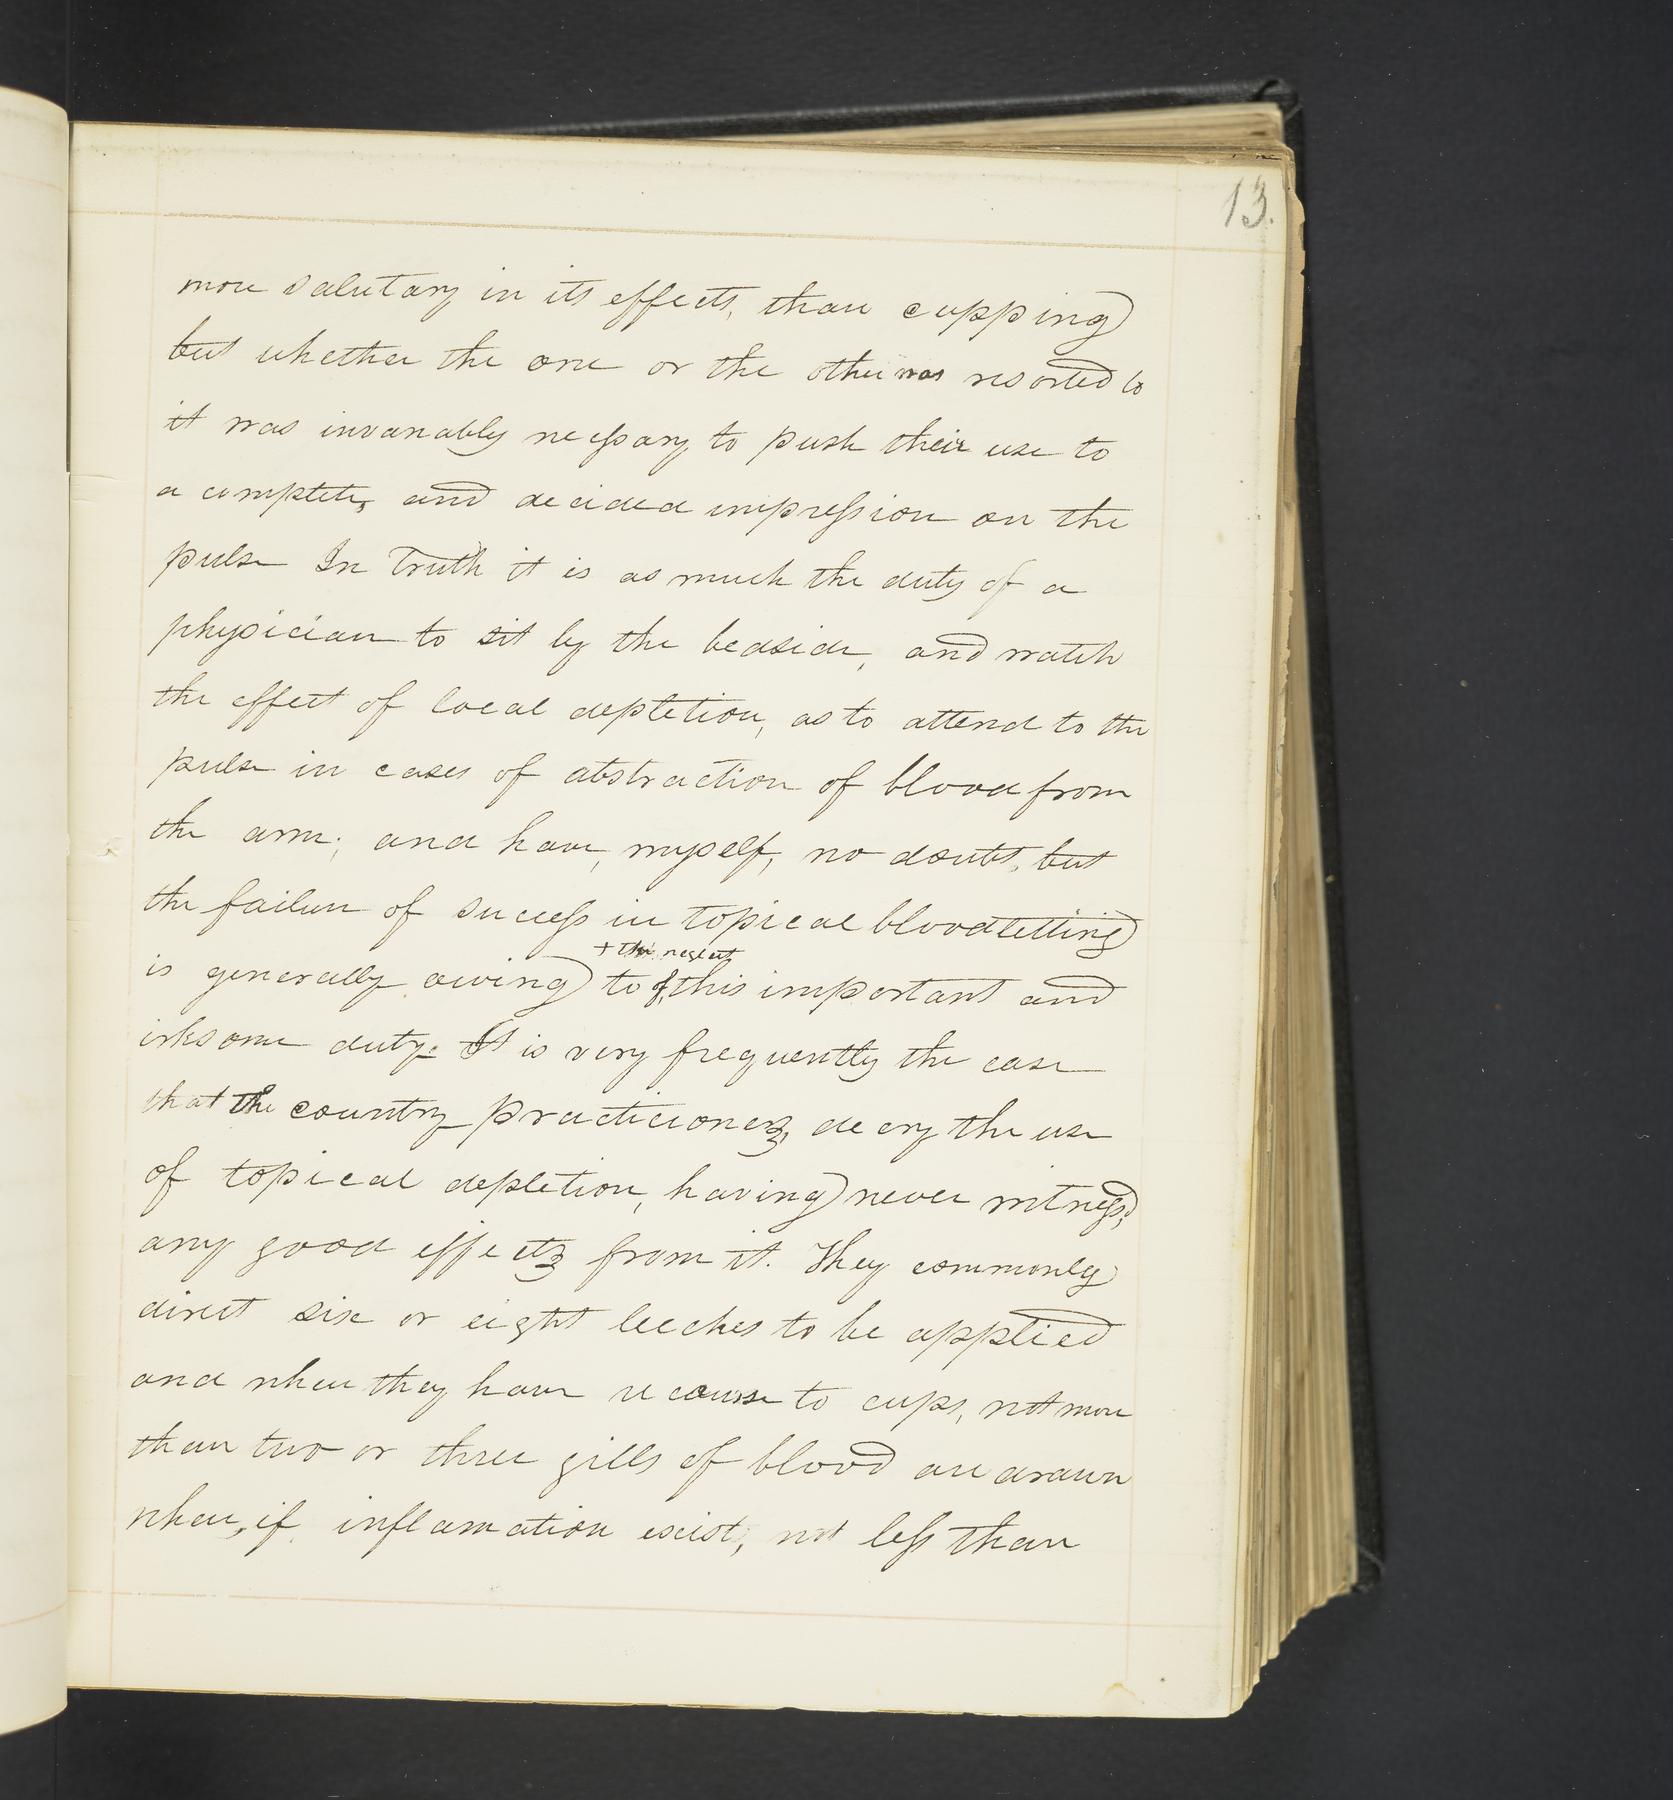 13.
more salutary in its effects, than cupping
but whether the one or the other was resorted to
it was invariably necessary to push their use to
a complete, and decided impression on the
pulse In truth it is as much the duty of a
physician to sit by the bedside, and watch
the effect of local depletion, as to attend to the
pulse in cases of abstraction of blood from
the arm; and have, myself, no doubt, but
the failure of success in topical bloodletting
+ the neglect
is generally owing to of, this important and
irksome duty. It is very frequently the case
that the country practicioners, decry the use
of topical depletion, having never witnessd,
any good effects from it. They commonly
direct six or eight leeches to be applied
and when they have recourse to cups, not more
than two or three gills of blood are drawn
when, if inflamation exist, not less than